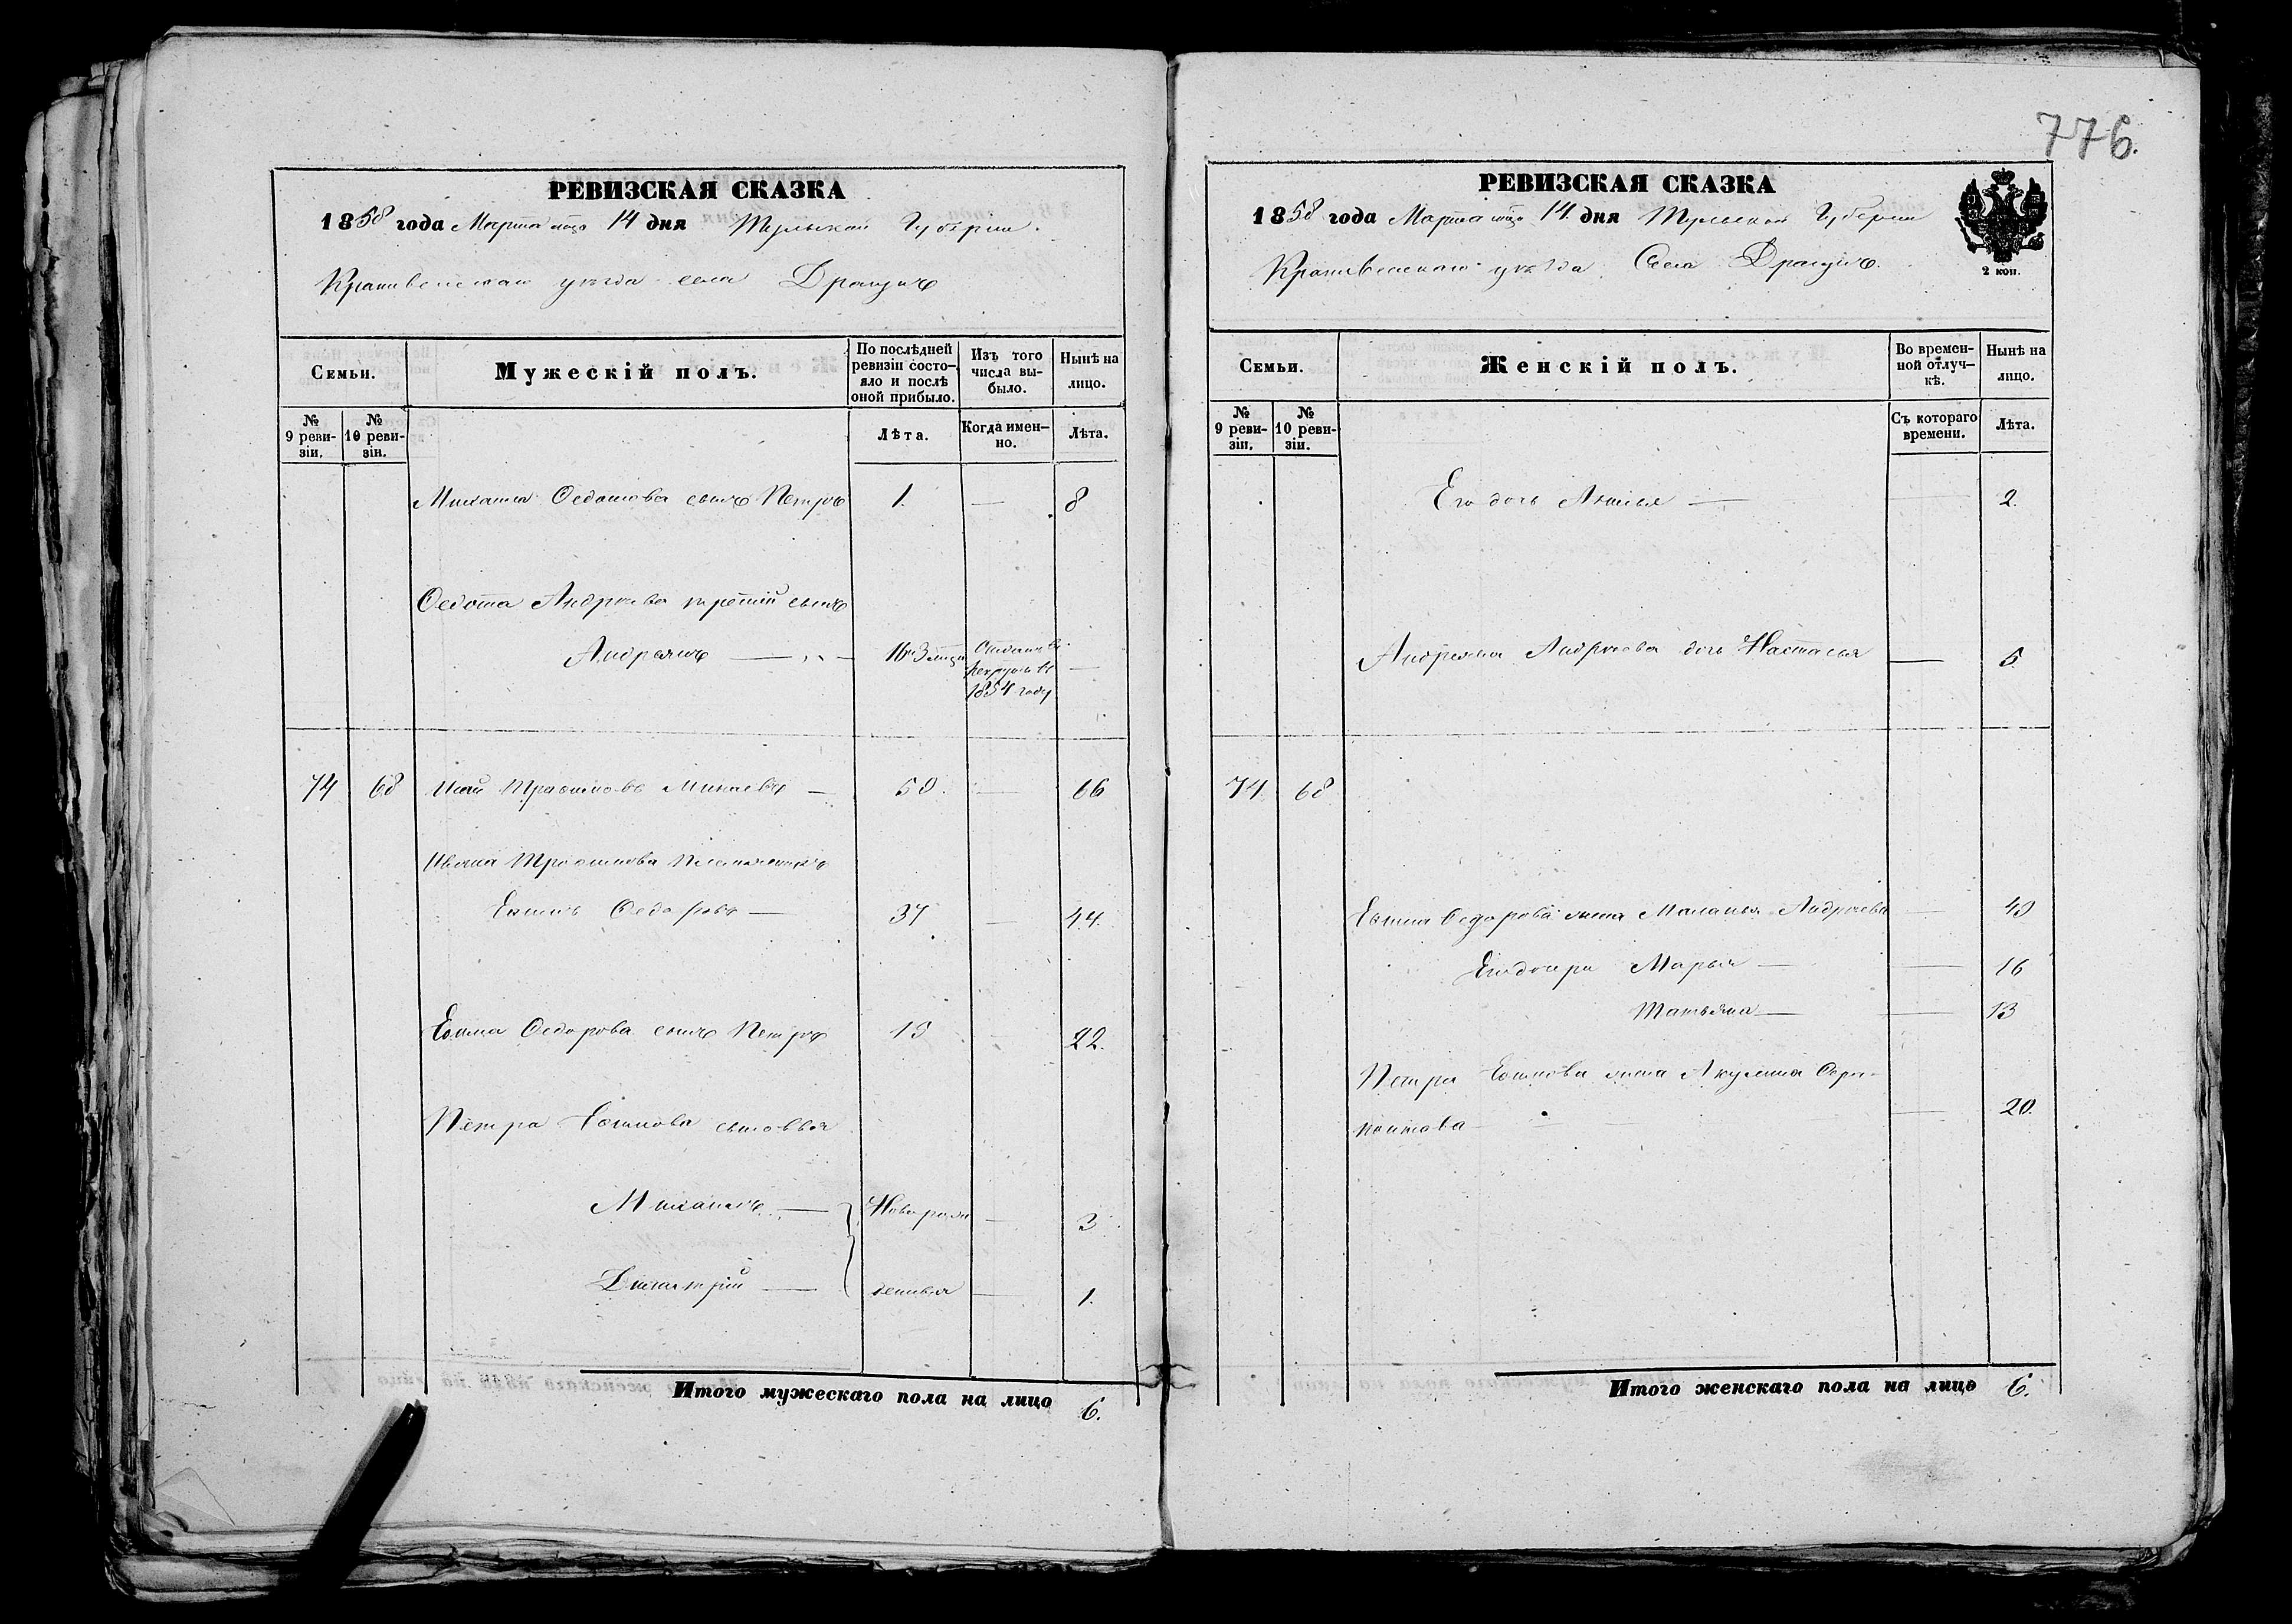 776.
РЕВИЗСКАЯ СКАЗКА
1858 года Марта мца 14 дня Тульской Губернии.
Крапивенскаго уѣзда села Драгунъ
Семьи.
Мужескій полъ.
По послѣдней ревизіи состояло и послѣ оной прибыло.
Изъ того числа выбыло.
Нынѣ на лицо.
№ 9 ревизіи.
№ 10 ревизіи.
Лѣта.
Когда именно.
Лѣта.
Михаила Ѳедотова сынъ Петръ 1. — 8
Ѳедота Андреева третій сынъ
Андреянъ — 16 Отданъ въ рекруты въ 1854 году —
74 68 Исай Траѳимовъ Минаевъ — 50. — 66
Ивана Траѳимова племянникъ
Еѳимъ Ѳедоровъ — 37 — 44.
Еѳима Ѳедорова сынъ Петръ 15 22.
Петра Еѳимова сыновья
Михаилъ — Новорож — 3
Дмитрій — денныя — 1.
Итого мужескаго пола на лицо 6.
РЕВИЗСКАЯ СКАЗКА
1858 года Марта мца 14 дня Тульской Губернии
Крапивенскаго уѣзда Села Драгунъ.
2 коп.
Семьи.
Женскій полъ.
Во временной отлучкѣ.
Нынѣ на лицо.
№ 9 ревизіи.
№ 10 ревизіи.
Съ котораго времени.
Лѣта.
Его дочь — 2.
Андреяна Андреева дочь Настасья — 5
74 68
Еѳима Ѳедорова жена Маланья Андреева — 43
Его дочери Марья — 16
Татьяна — 13
Петра Еѳимова жена Акулина —
— 20.
Итого женскаго пола на лицо 6.